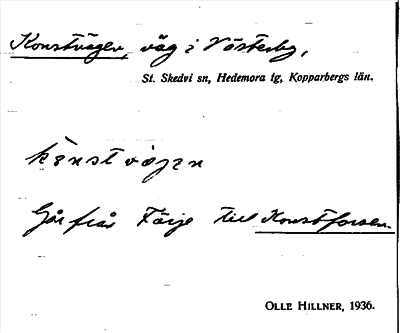 Konstvägen, väg i Västerby,
St. Skedvi sn, Hedemora tg, Kopparbergs län.
kònstvägen
Går från Färje till Konstforsen.
OLLE HILLNER, 1936.